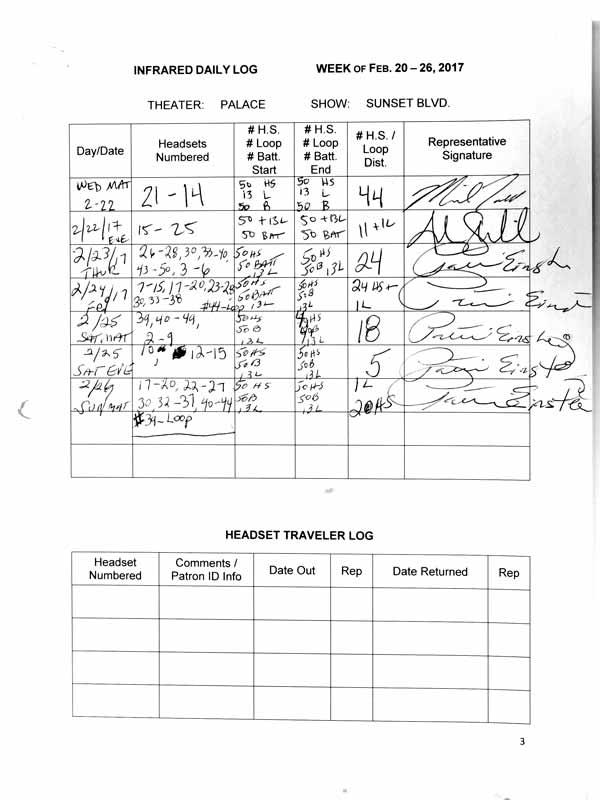 INFRARED DAILY LOG WEEK OF FEB. 20 – 26, 2017
THEATER: PALACE SHOW: SUNSET BLVD.
Day/Date Headsets Numbered # H.S. # Loop # Batt. Start # H.S. # Loop # Batt. End # H.S. / Loop Dist. Representative Signature
WED MAT 2-22 21 - 14 50 HS 13 L 50 B 50 HS 13 L 50 B 44
2/22/17 EVE 15 - 25 50 + 13L 50 BAT 50 + 13L 50 BAT 11 + 1L
2/23/17 THUR 26-28, 30, 33-40 43-50, 3-6 50HS 50 BATT 13L 50HS 50B 13L 24
2/24/17 FRI 7-15, 17-20, 23-28 30, 33-38 #44-Loop 50HS 50BATT 13L 50HS 50B 13L 24 HS + 1L
2/25 SAT. MAT 39, 40-49, 2-9 50HS 50B 13L 50B 13L 18
2/25 SAT EVE 10 12-15 50HS 50B 13L 50HS 50B 13L 5
2/26 SUN MAT 17-20, 22-27 30, 32-37, 40-44 #39-Loop 50 HS 50B 13L 50HS 50B 13L 1L 20HS
HEADSET TRAVELER LOG
Headset Numbered Comments / Patron ID Info Date Out Rep Date Returned Rep
3